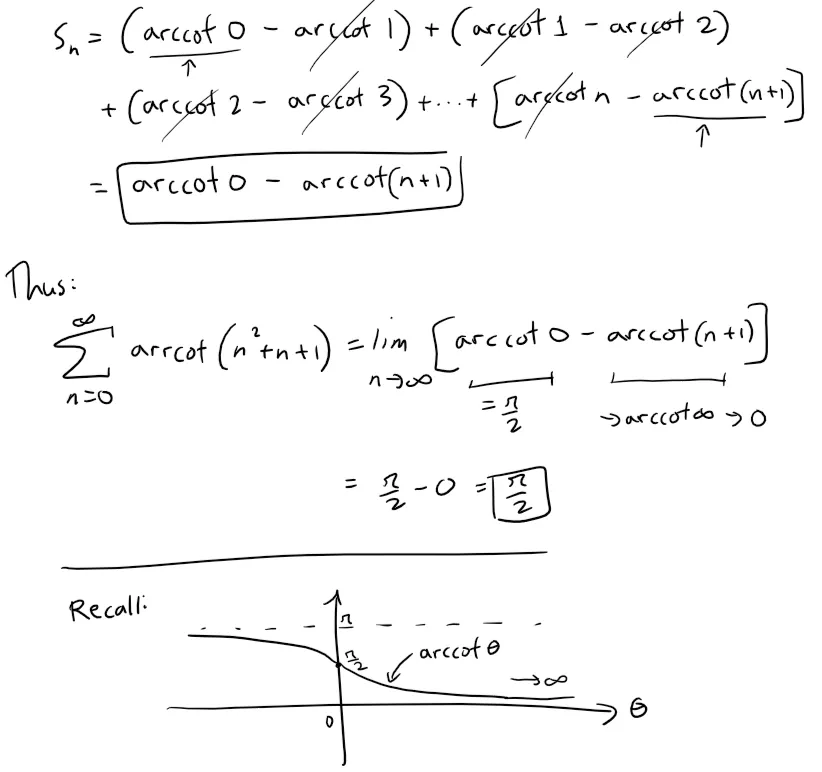 Sₙ = (arccot 0 - arccot 1) + (arccot 1 - arccot 2)
↑
+ (arccot 2 - arccot 3) + ... + [arccot n - arccot(n+1)]
↑
= arccot 0 - arccot(n+1)
Thus:
∑_{n=0}^{∞} arrcot (n²+n+1) = lim_{n→∞} [arccot 0 - arccot(n+1)]
= π/2 → arccot ∞ → 0
= π/2 - 0 = π/2
Recall:
π
π/2
arccot θ
→ ∞
0
θ